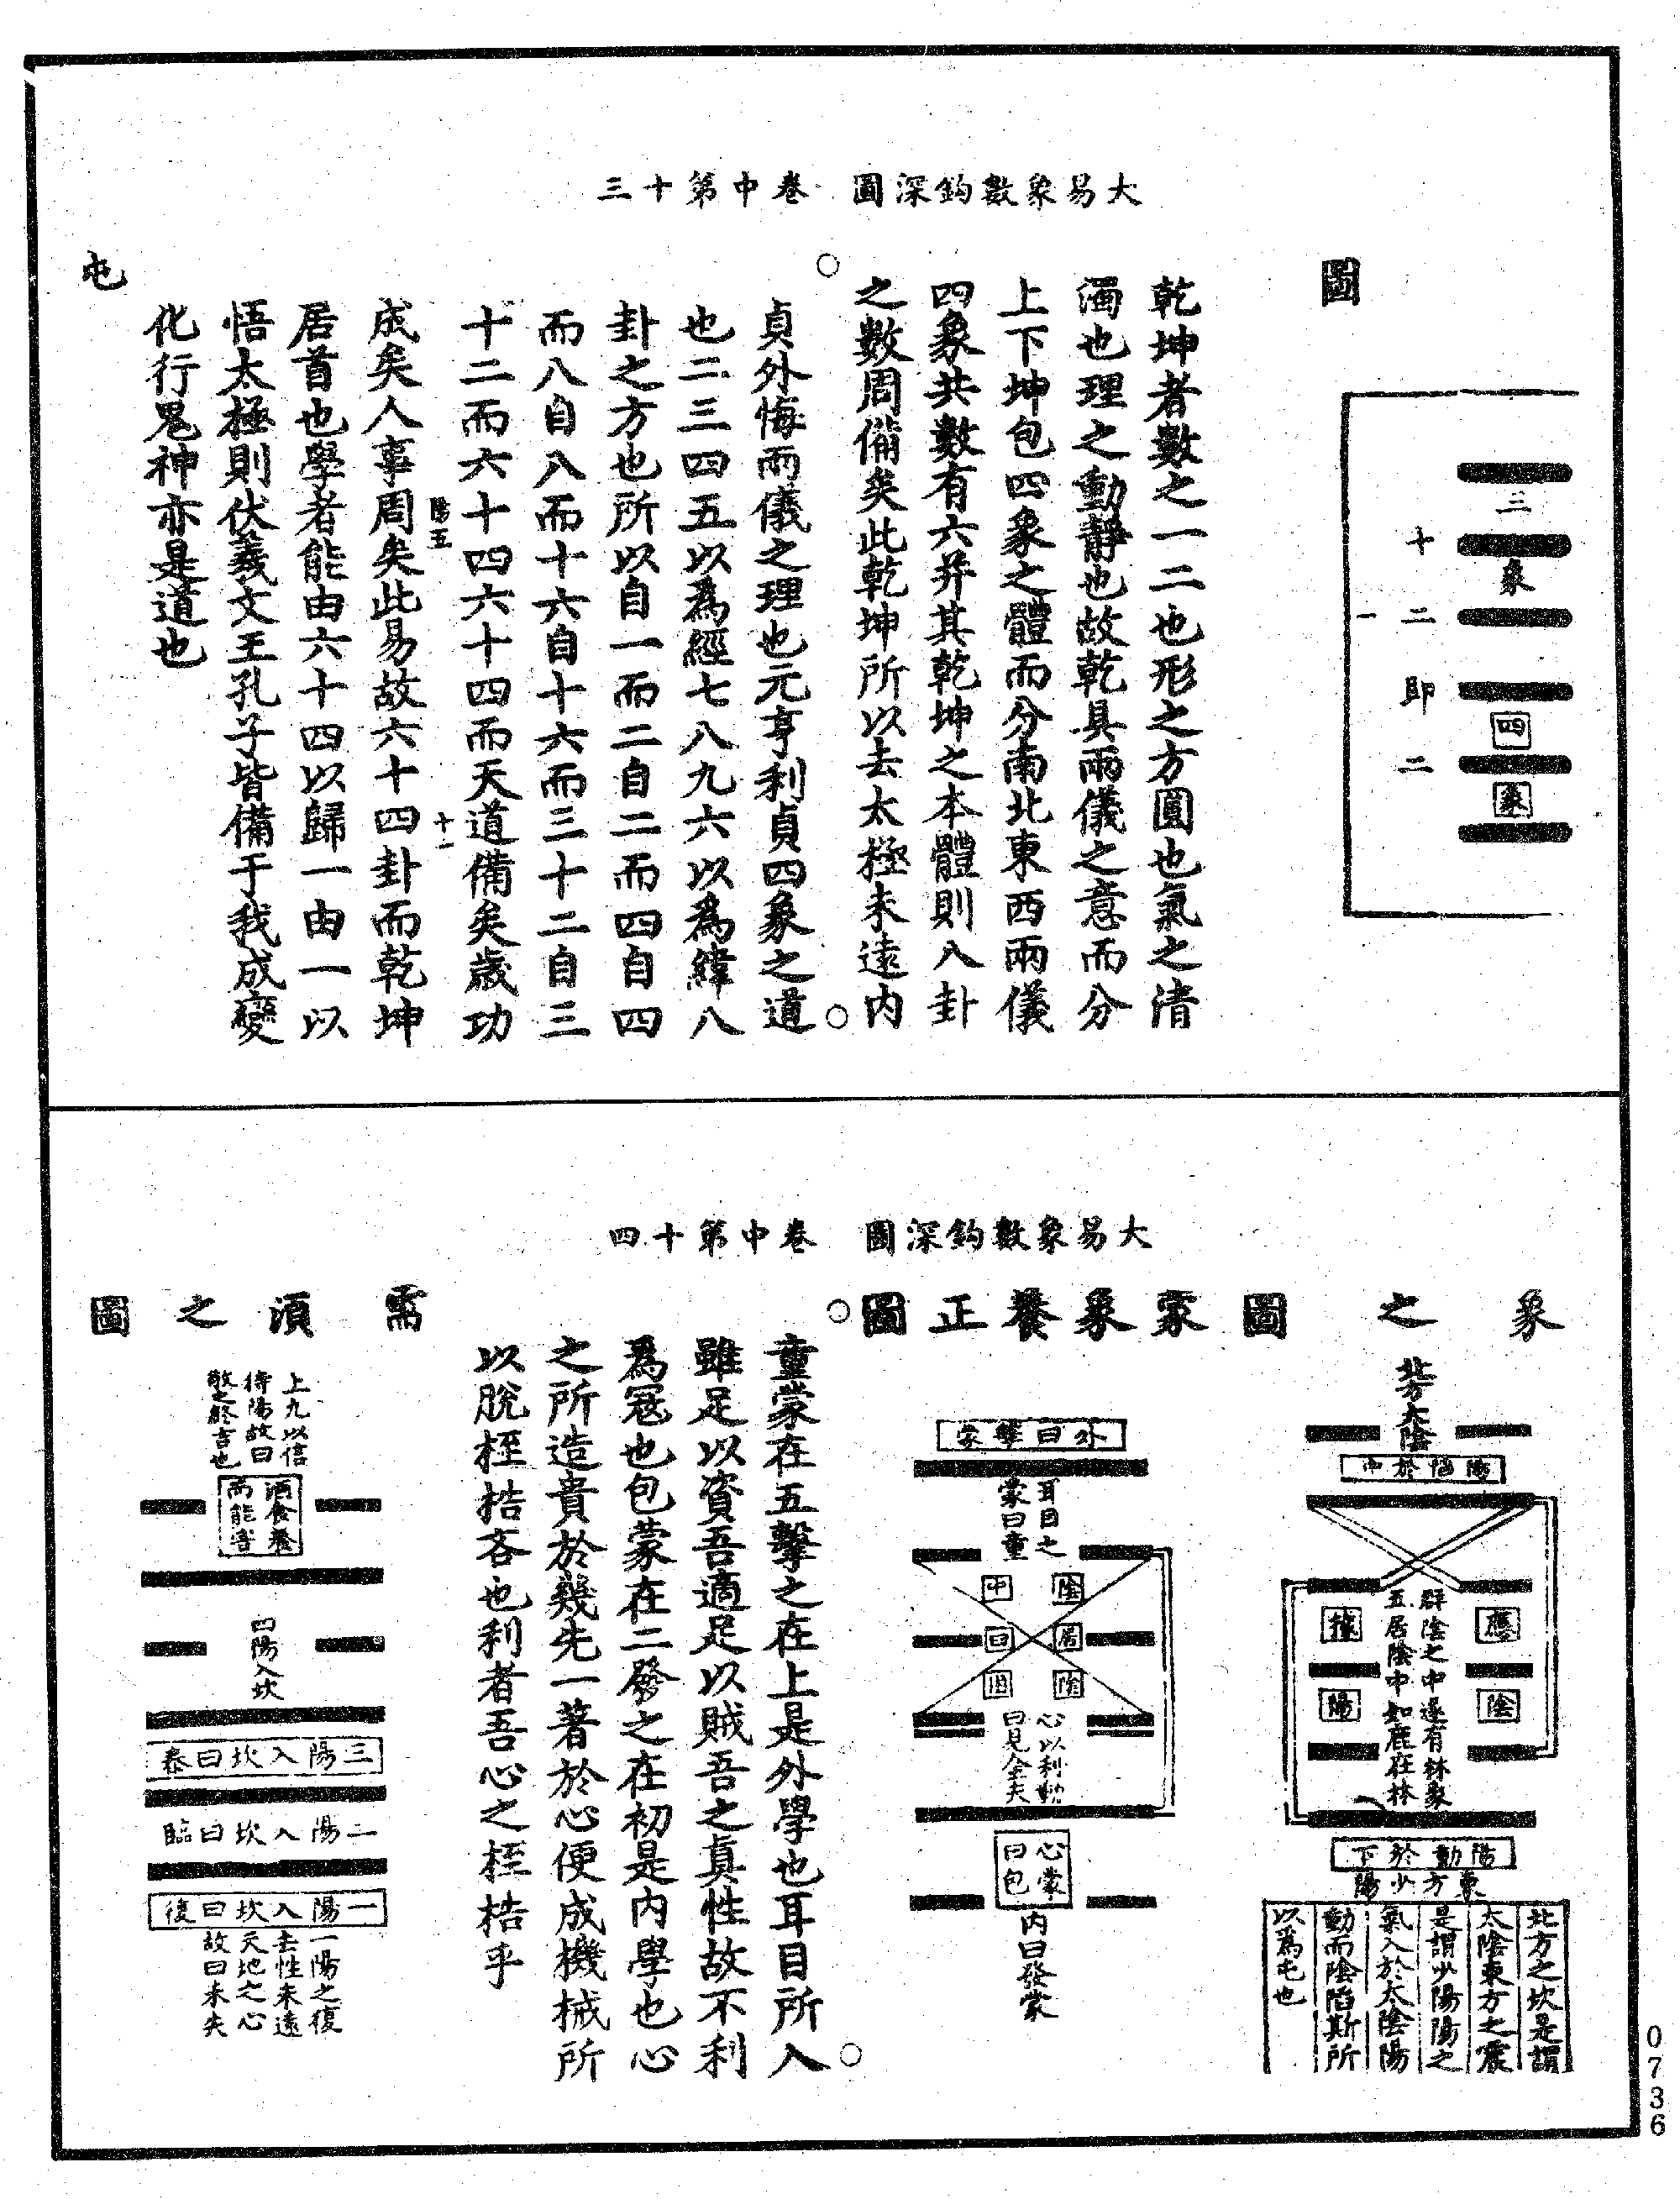 大易象數鈎深圖　卷中第十三
圖
三
象
四
象
十
二
即
二
一
乾坤者數之一二也形之方圓也氣之清
濁也理之動靜也故乾具兩儀之意而分
上下坤包四象之體而分南北東西兩儀
四象共數有六并其乾坤之本體則八卦
之數周備矣此乾坤所以去太極未遠內
貞外悔兩儀之理也元亨利貞四象之道
也二三四五以為經七八九六以為緯八
卦之方也所以自一而二自二而四自四
而八自八而十六自十六而三十二自三
十二而六十四六十四而天道備矣歲功
陽五
十一
成矣人事周矣此易故六十四卦而乾坤
居首也學者能由六十四以歸一由一以
悟太極則伏羲文王孔子皆備于我成變
化行鬼神亦是道也
屯
大易象數鈎深圖　卷中第十四
象之圖
北方太陰
陽陷於中
應
陰
群陰之中遂有林象
五居陰中如鹿在林
陽
陽動於下
東方少陽
北方之坎是謂
太陰東方之震
是謂少陽陽之
氣入於太陰陽
動而陰陷斯所
以為屯也
蒙象養正圖
外曰擊蒙
耳目之
蒙曰童
陰
居
陰
中
曰
困
心以利動
曰見金夫
心蒙
曰包
內曰發蒙
童蒙在五擊之在上是外學也耳目所入
雖足以資吾適足以賊吾之真性故不利
為冦也包蒙在二發之在初是內學也心
之所造貴於幾先一著於心便成機械所
以脫桎梏吝也利者吾心之桎梏乎
需須之圖
上九以信
待陽故曰
敬之終吉也
酒食養
四陽入坎
三陽入坎曰泰
二陽入坎曰臨
一陽入坎曰復
一陽之復
去性未遠
天地之心
故曰未失
0736